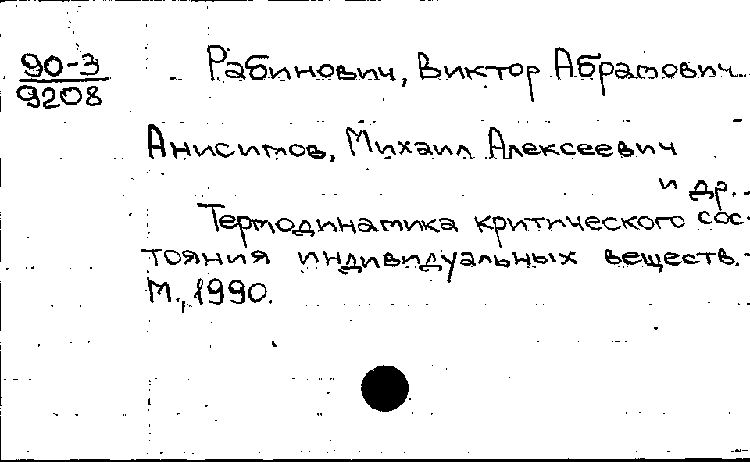 90-3
9208
Рабинович, Виктор Абрамович
Анисимов, Михаил Алексеевич
и др.
Термодинамика критического сос-
тояния индивидуальных веществ.-
М., 1990.